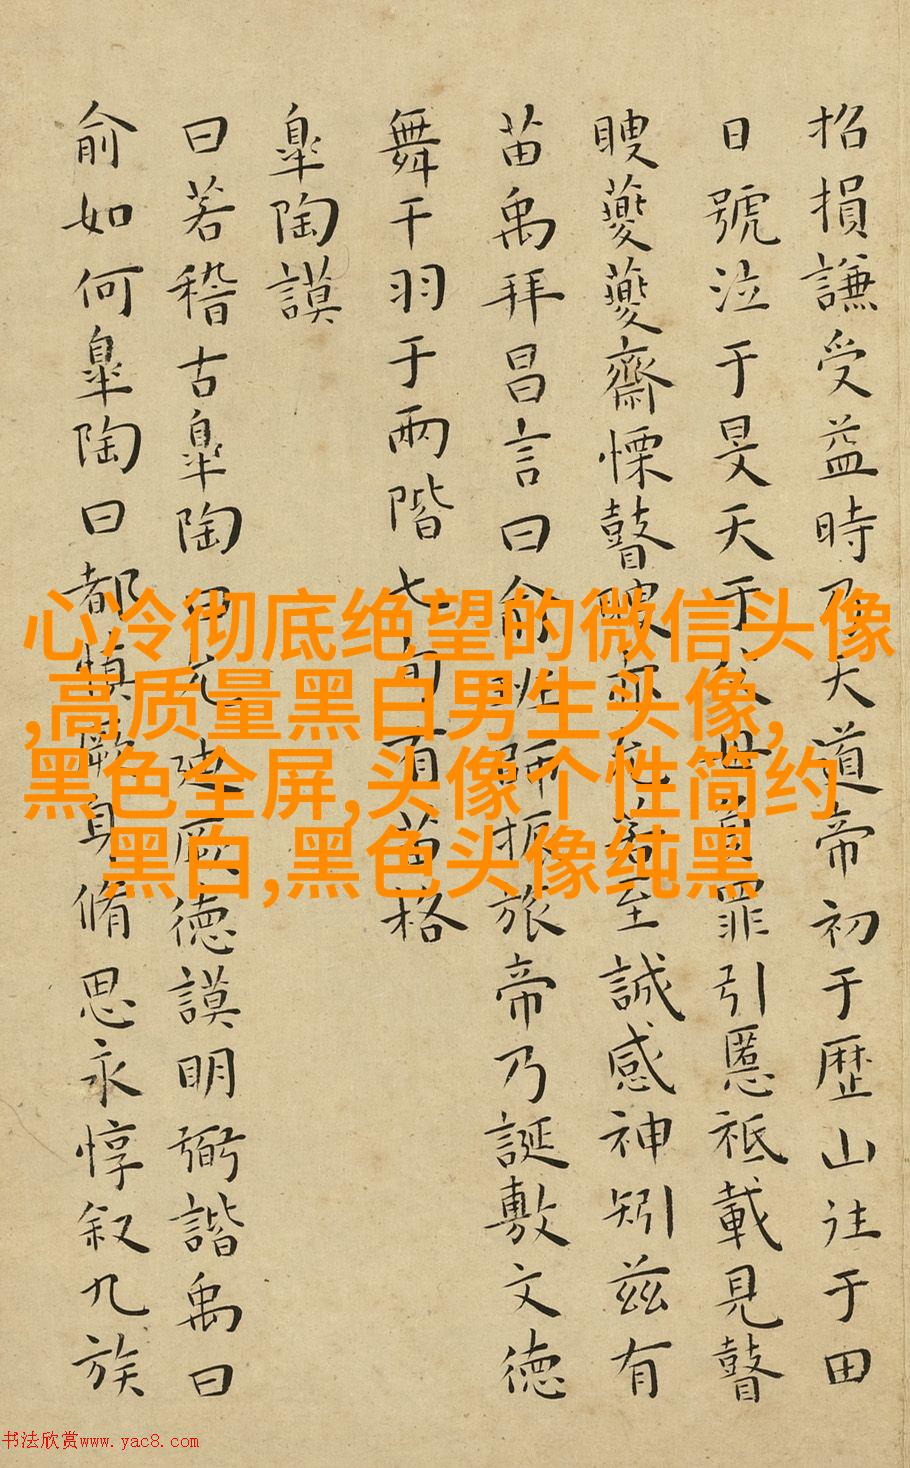 招損謙受益時乃天道帝初于歷山往于田
日號泣于旻天于父母負罪引慝祗載見瞽
瞍夔夔齋慄瞽瞍亦允若至諴感神矧茲有
苗禹拜昌言曰俞班師振旅帝乃誕敷文德
舞干羽于兩階七旬有苗格
臯陶謨
曰若稽古臯陶曰允迪厥德謨明弼諧禹曰
俞如何臯陶曰都慎厥身脩思永惇叙九族
心冷彻底绝望的微信头像
,高质量黑白男生头像,
黑色全屏,头像个性简约
黑白,黑色头像纯黑
书法欣赏www.yac8.com